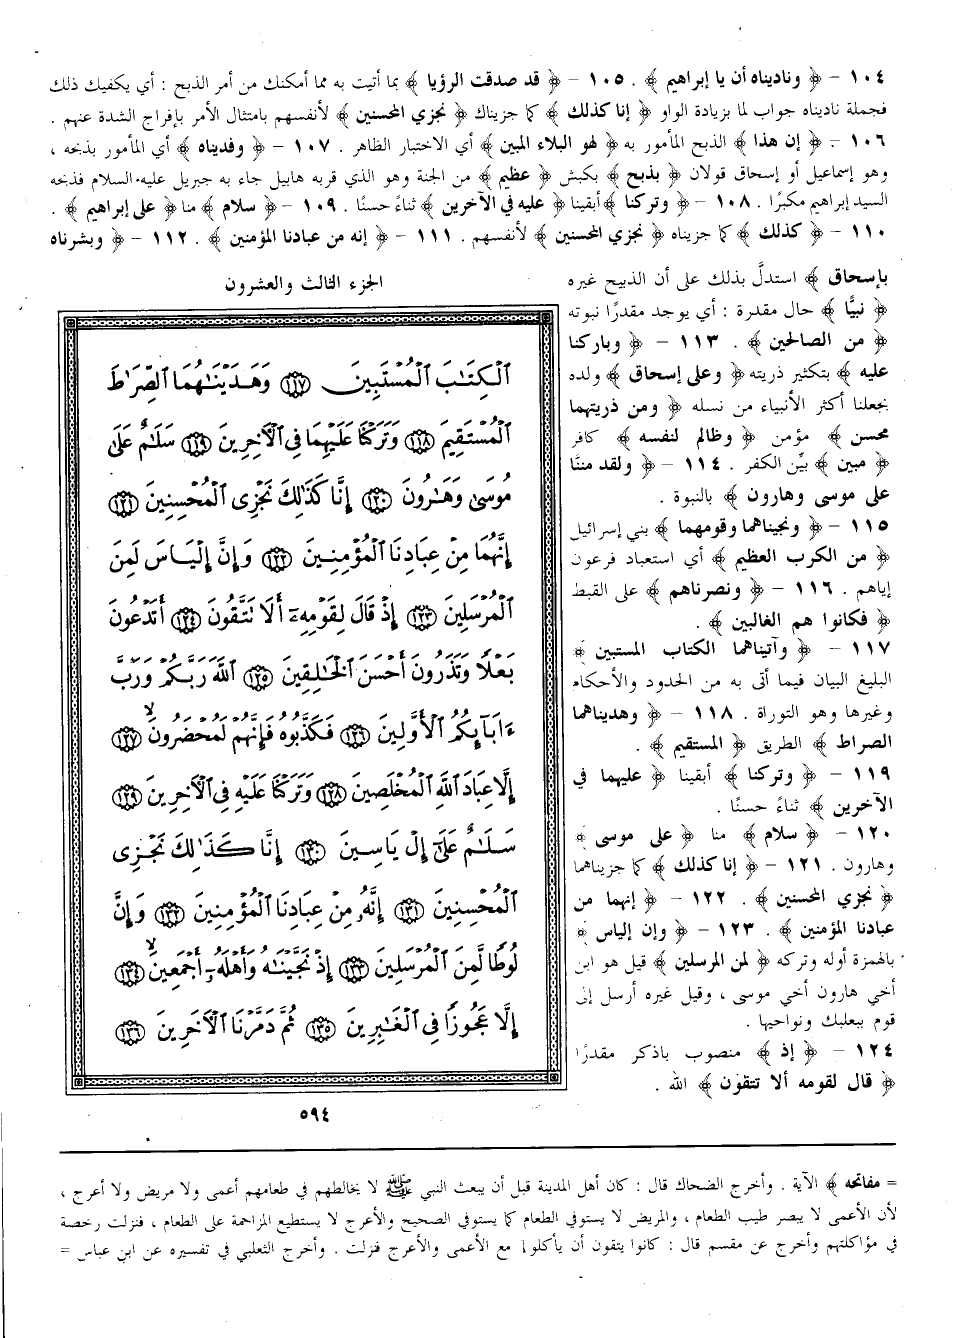 ١٠٤ - ﴿ وناديناه أن يا إبراهيم ﴾ . ١٠٥ - ﴿ قد صدقت الرؤيا ﴾ بما أتيت به مما أمكنك من أمر الذبح : أي يكفيك ذلك
فجملة ناديناه جواب لما بزيادة الواو ﴿ إنا كذلك ﴾ كما جزيناك ﴿ نجزي المحسنين ﴾ لأنفسهم بامتثال الأمر بإفراج الشدة عنهم .
١٠٦ - ﴿ إن هذا ﴾ الذبح المأمور به ﴿ لهو البلاء المبين ﴾ أي الاختبار الظاهر . ١٠٧ - ﴿ وفديناه ﴾ أي المأمور بذبحه ،
وهو إسماعيل أو إسحاق قولان ﴿ بذبح ﴾ بكبش ﴿ عظيم ﴾ من الجنة وهو الذي قربه هابيل جاء به جبريل عليه السلام فذبحه
السيد إبراهيم مكبرًا . ١٠٨ - ﴿ وتركنا ﴾ أبقينا ﴿ عليه في الآخرين ﴾ ثناءً حسنًا . ١٠٩ - ﴿ سلام ﴾ منا ﴿ على إبراهيم ﴾ .
١١٠ - ﴿ كذلك ﴾ كما جزيناه ﴿ نجزي المحسنين ﴾ لأنفسهم . ١١١ - ﴿ إنه من عبادنا المؤمنين ﴾ . ١١٢ - ﴿ وبشرناه
بإسحاق ﴾ استدلَّ بذلك على أن الذبيح غيره
﴿ نبيًّا ﴾ حال مقدرة : أي يوجد مقدرًا نبوته
﴿ من الصالحين ﴾ . ١١٣ - ﴿ وباركنا
عليه ﴾ بتكثير ذريته ﴿ وعلى إسحاق ﴾ ولده
بجعلنا أكثر الأنبياء من نسله ﴿ ومن ذريتهما
محسن ﴾ مؤمن ﴿ وظالم لنفسه ﴾ كافر
﴿ مبين ﴾ بيِّن الكفر . ١١٤ - ﴿ ولقد مننَّا
على موسى وهارون ﴾ بالنبوة .
١١٥ - ﴿ ونجيناهما وقومهما ﴾ بني إسرائيل
﴿ من الكرب العظيم ﴾ أي استعباد فرعون
إياهم . ١١٦ - ﴿ ونصرناهم ﴾ على القبط
﴿ فكانوا هم الغالبين ﴾ .
١١٧ - ﴿ وآتيناهما الكتاب المستبين ﴾
البليغ البيان فيما أتى به من الحدود والأحكام
وغيرها وهو التوراة . ١١٨ - ﴿ وهديناهما
الصراط ﴾ الطريق ﴿ المستقيم ﴾ .
١١٩ - ﴿ وتركنا ﴾ أبقينا ﴿ عليهما في
الآخرين ﴾ ثناءً حسنًا .
١٢٠ - ﴿ سلام ﴾ منا ﴿ على موسى ﴾
وهارون . ١٢١ - ﴿ إنا كذلك ﴾ كما جزيناهما
﴿ نجزي المحسنين ﴾ . ١٢٢ - ﴿ إنهما من
عبادنا المؤمنين ﴾ . ١٢٣ - ﴿ وإن إلياس ﴾
بالهمزة أوله وتركه ﴿ لمن المرسلين ﴾ قيل هو ابن
أخي هارون أخي موسى ، وقيل غيره أرسل إلى
قوم ببعلبك ونواحيها .
١٢٤ - ﴿ إذ ﴾ منصوب باذكر مقدرًا
﴿ قال لقومه ألا تتقون ﴾ الله .
الجزء الثالث والعشرون
ٱلْكِتَٰبَ ٱلْمُسْتَبِينَ ١١٧ وَهَدَيْنَٰهُمَا ٱلصِّرَٰطَ
ٱلْمُسْتَقِيمَ ١١٨ وَتَرَكْنَا عَلَيْهِمَا فِى ٱلْأَخِرِينَ ١١٩ سَلَٰمٌ عَلَىٰ
مُوسَىٰ وَهَٰرُونَ ١٢٠ إِنَّا كَذَٰلِكَ نَجْزِى ٱلْمُحْسِنِينَ ١٢١
إِنَّهُمَا مِنْ عِبَادِنَا ٱلْمُؤْمِنِينَ ١٢٢ وَإِنَّ إِلْيَاسَ لَمِنَ
ٱلْمُرْسَلِينَ ١٢٣ إِذْ قَالَ لِقَوْمِهِۦٓ أَلَا تَتَّقُونَ ١٢٤ أَتَدْعُونَ
بَعْلًا وَتَذَرُونَ أَحْسَنَ ٱلْخَٰلِقِينَ ١٢٥ ٱللَّهَ رَبَّكُمْ وَرَبَّ
ءَابَآئِكُمُ ٱلْأَوَّلِينَ ١٢٦ فَكَذَّبُوهُ فَإِنَّهُمْ لَمُحْضَرُونَ ١٢٧
إِلَّا عِبَادَ ٱللَّهِ ٱلْمُخْلَصِينَ ١٢٨ وَتَرَكْنَا عَلَيْهِ فِى ٱلْأَخِرِينَ ١٢٩
سَلَٰمٌ عَلَىٰٓ إِلْ يَاسِينَ ١٣٠ إِنَّا كَذَٰلِكَ نَجْزِى
ٱلْمُحْسِنِينَ ١٣١ إِنَّهُۥ مِنْ عِبَادِنَا ٱلْمُؤْمِنِينَ ١٣٢ وَإِنَّ
لُوطًا لَّمِنَ ٱلْمُرْسَلِينَ ١٣٣ إِذْ نَجَّيْنَٰهُ وَأَهْلَهُۥٓ أَجْمَعِينَ ١٣٤
إِلَّا عَجُوزًا فِى ٱلْغَٰبِرِينَ ١٣٥ ثُمَّ دَمَّرْنَا ٱلْأَخَرِينَ ١٣٦
٥٩٤
= مفاتحه ﴾ الآية . وأخرج الضحاك قال : كان أهل المدينة قبل أن يبعث النبي ﷺ لا يخالطهم في طعامهم أعمى ولا مريض ولا أعرج ،
لأن الأعمى لا يبصر طيب الطعام ، والمريض لا يستوفي الطعام كما يستوفي الصحيح والأعرج لا يستطيع المزاحمة على الطعام ، فنزلت رخصة
في مؤاكلتهم وأخرج عن مقسم قال : كانوا يتقون أن يأكلوا مع الأعمى والأعرج فنزلت . وأخرج الثعلبي في تفسيره عن ابن عباس =